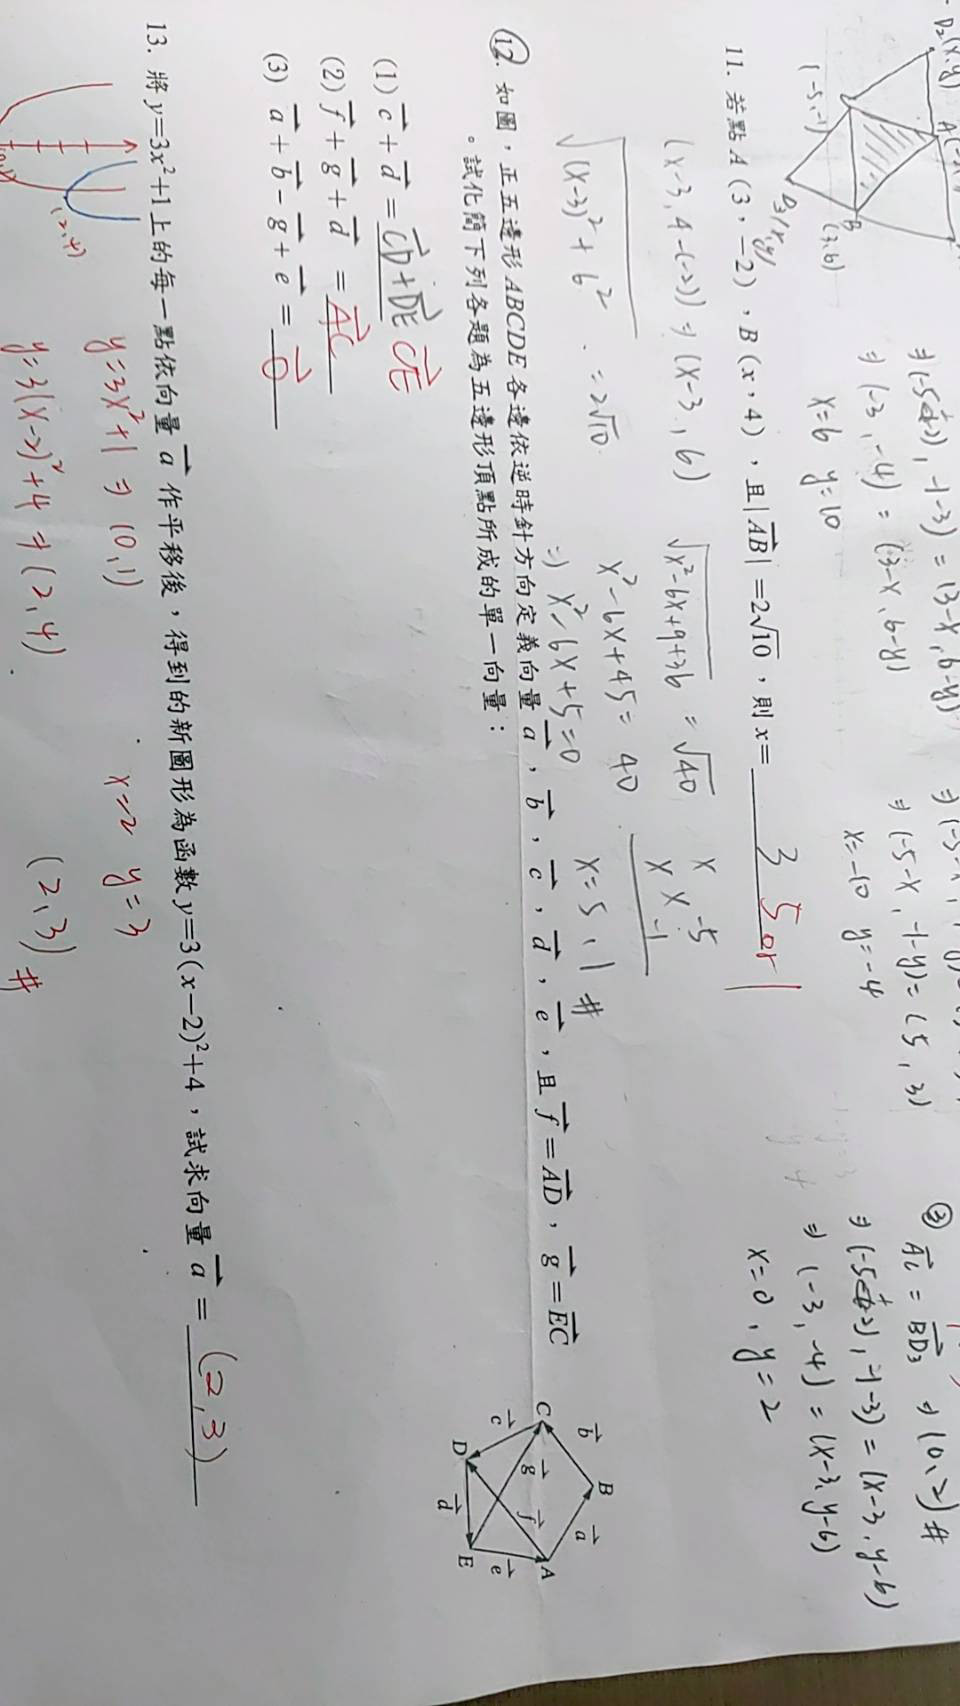 D₂(x,y)
A(-
B
(3,6)
(-5,-1)
D₃(x,y)
⇒ (-5+2), -1-3) = (3-x, 6-y)
⇒ (-3, -4) = (3-x, 6-y)
x=6 y=10
⇒ (-5-x, -1-y) = (5, 3)
x=-10 y=-4
③ AC = BD₃ ⇒ (0, 2) #
⇒ (-5+2), -1-3) = (x-3, y-6)
⇒ (-3, -4) = (x-3, y-6)
x=0, y=2
11. 若點 A(3,-2)、B(x,4),且|AB|=2√10,則 x= 3 5 or 1
(x-3, 4-(-2)) ⇒ (x-3, 6)
√(x-3)²+6² = 2√10
√x²-6x+9+36 = √40
x²-6x+45=40
⇒ x²-6x+5=0
x -5
x -1
x=5, 1 #
12. 如圖,正五邊形 ABCDE 各邊依逆時針方向定義向量 a, b, c, d, e,且 f=AD, g=EC
。試化簡下列各題為五邊形頂點所成的單一向量:
(1) c+d= CD+DE CE
(2) f+g+d= AC
(3) a+b-g+e= 0
A
B
C
D
E
a
b
c
d
e
f
g
13. 將 y=3x²+1 上的每一點依向量 a 作平移後,得到的新圖形為函數 y=3(x-2)²+4,試求向量 a= (2,3)
(2,4)
y=3x²+1 ⇒ (0,1)
x=2 y=3
y=3(x-2)²+4 ⇒ (2,4)
(2,3) #